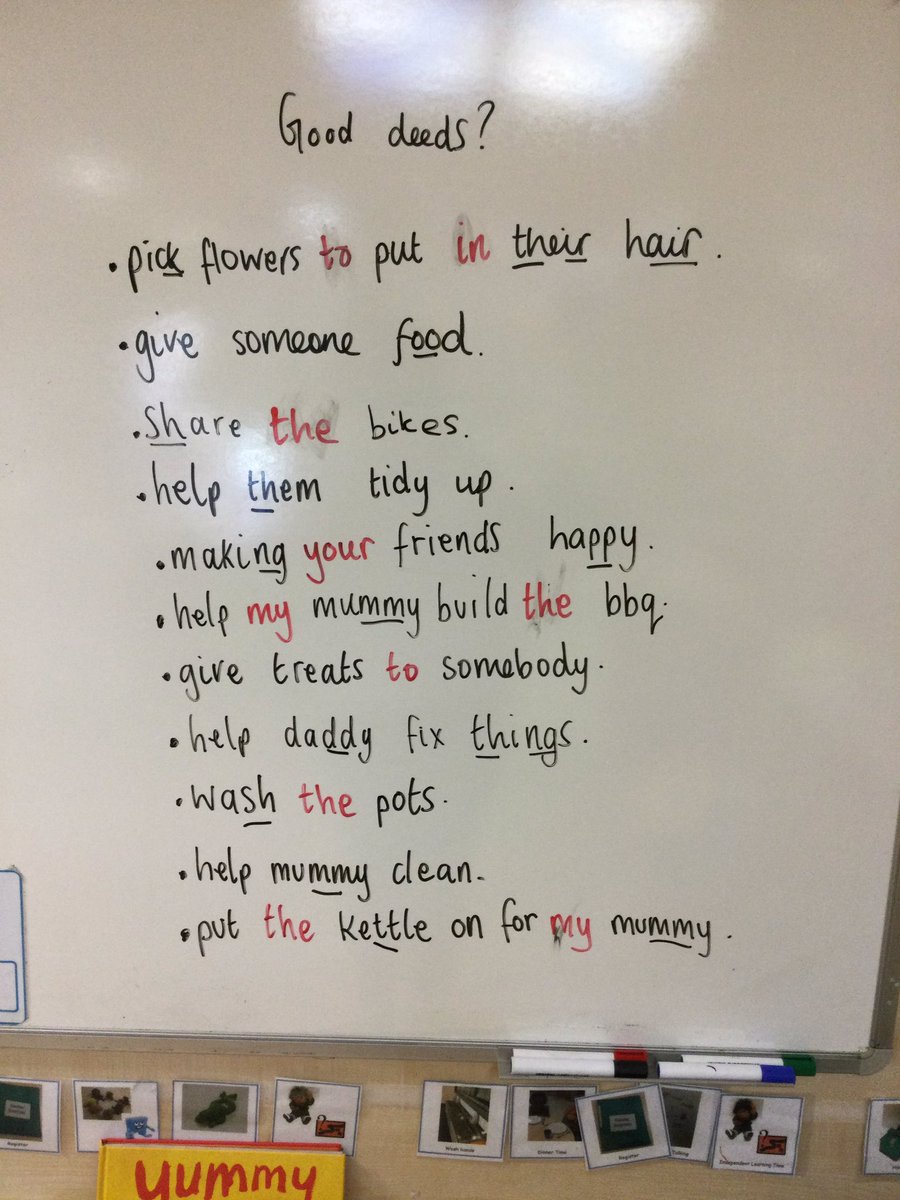 Good deeds?
• pick flowers to put in their hair.
• give someone food.
• Share the bikes.
• help them tidy up.
• making your friends happy.
• help my mummy build the bbq.
• give treats to somebody.
• help daddy fix things.
• wash the pots.
• help mummy clean.
• put the kettle on for my mummy.
Register
Wash hands
Dinner Time
Register
Talking
Independent Learning Time
yummy